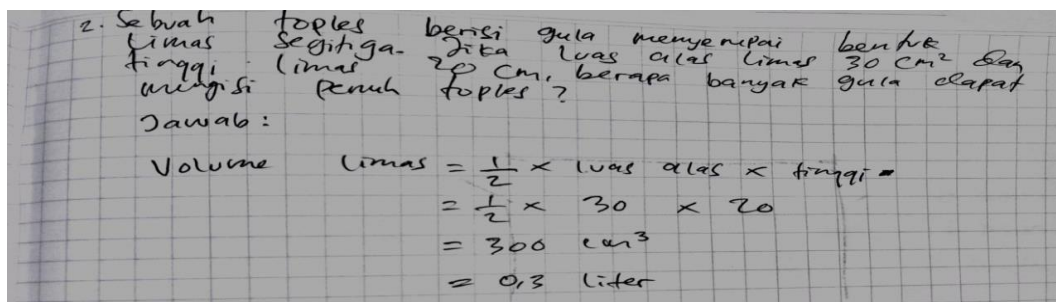 2. Sebuah toples berisi gula menyerupai bentuk
limas segitiga. Jika luas alas limas 30 cm² dan
tinggi limas 20 cm, berapa banyak gula dapat
mengisi penuh toples?
Jawab:
Volume limas = 1/2 × luas alas × tinggi
= 1/2 × 30 × 20
= 300 cm³
= 0,3 liter